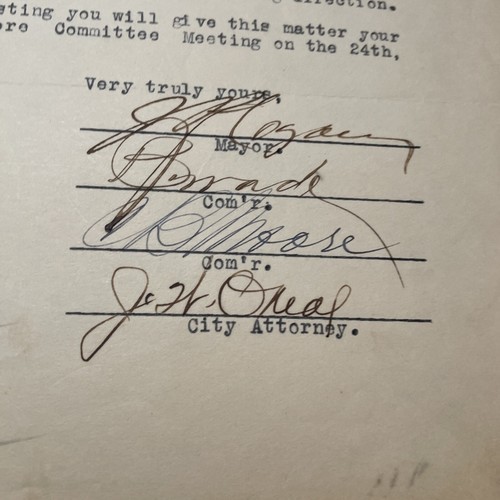 irection.
sting you will give this matter your
ore Committee Meeting on the 24th,
Very truly yours,
Mayor.
Com'r.
Moore
Com'r.
J. W. Oneal
City Attorney.